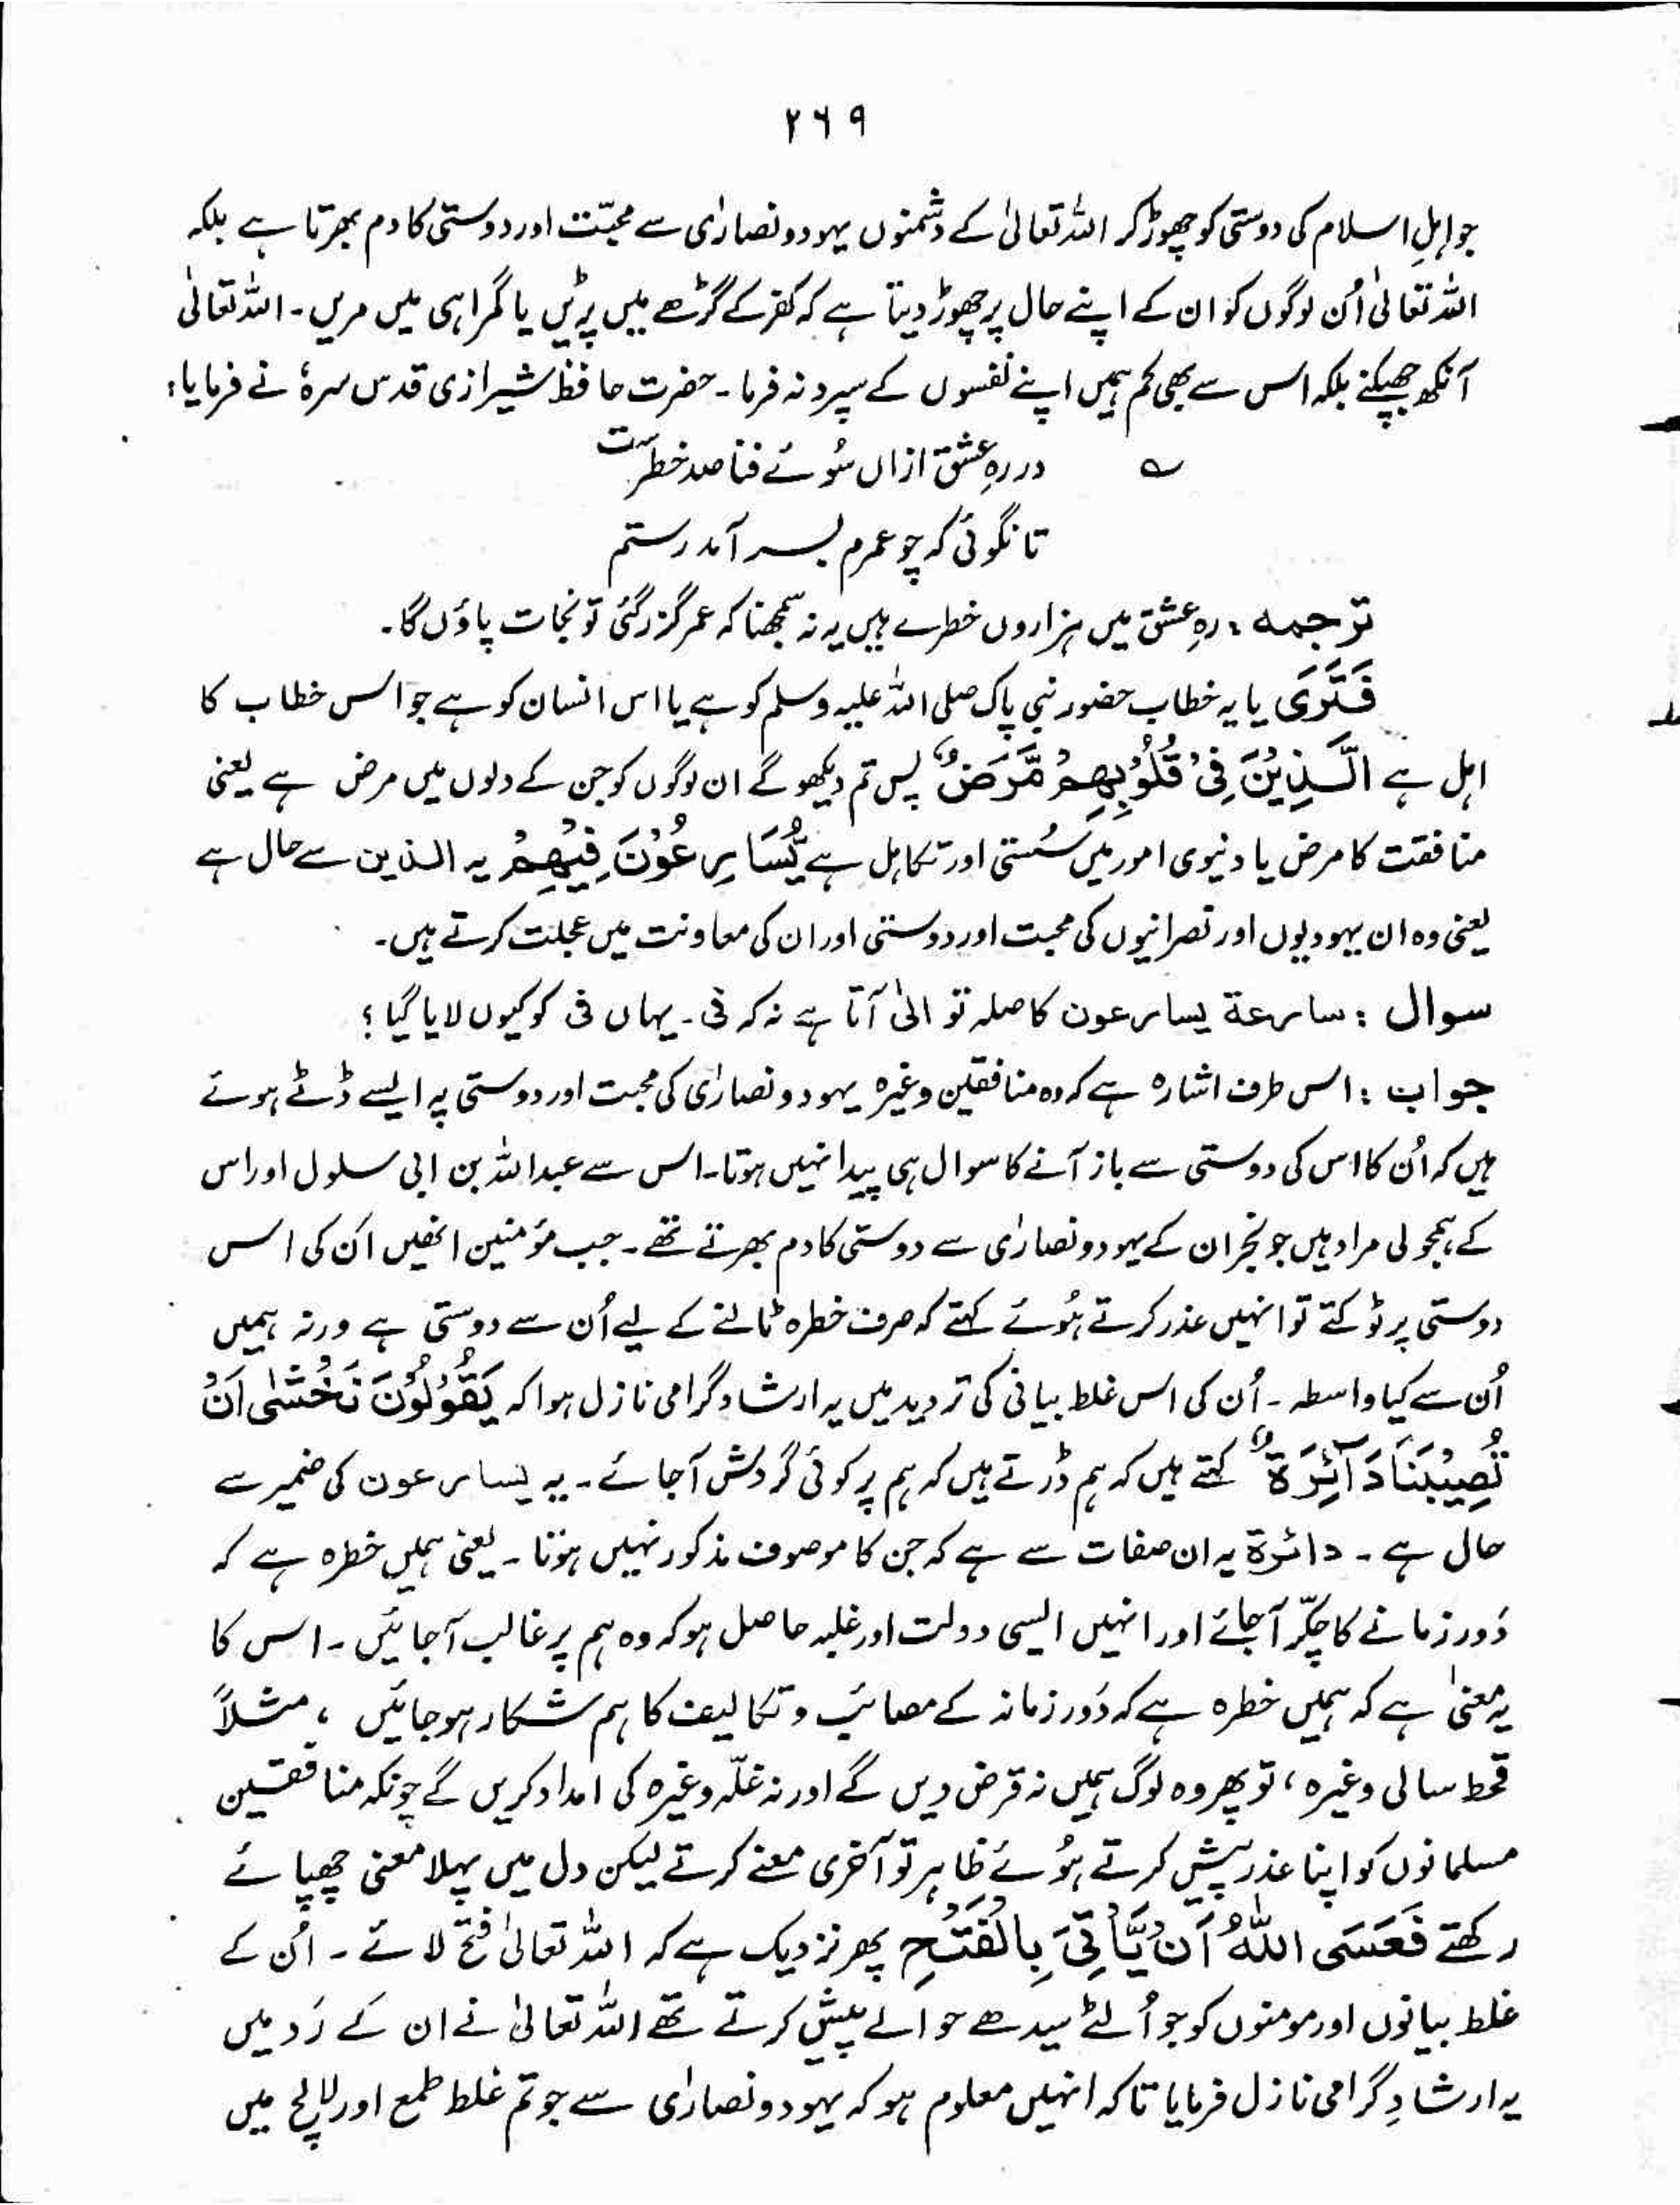 ۲۶۹
جو اہلِ اسلام کی دوستی کو چھوڑ کر اللہ تعالیٰ کے دشمنوں یہود و نصارٰی سے محبّت اور دوستی کا دم بھرتا ہے بلکہ
اللہ تعالیٰ اُن لوگوں کو ان کے اپنے حال پر چھوڑ دیتا ہے کہ کفر کے گڑھے میں پڑیں یا گمراہی میں مریں۔ اللہ تعالیٰ
آنکھ جھپکنے بلکہ اس سے بھی کم ہمیں اپنے نفسوں کے سپرد نہ فرما۔ حضرت حافظ شیرازی قدس سرہٗ نے فرمایا:
؎ در رہِ عشق ازاں سُوئے فنا صد خطرست
تا نگوئی کہ چو عمرم بسر آمد رستم
ترجمہ: رہِ عشق میں ہزاروں خطرے ہیں یہ نہ سمجھنا کہ عمر گزر گئی تو نجات پاؤں گا۔
فَتَرَی یا یہ خطاب حضور نبی پاک صلی اللہ علیہ وسلم کو ہے یا اس انسان کو ہے جو اس خطاب کا
اہل ہے الَّذِیْنَ فِیْ قُلُوْبِهِمْ مَّرَضٌ پس تم دیکھو گے ان لوگوں کو جن کے دلوں میں مرض ہے یعنی
منافقت کا مرض یا دنیوی امور میں سُستی اور تکاہل ہے یُّسَارِعُوْنَ فِیْهِمْ یہ الذین سے حال ہے
یعنی وہ ان یہودیوں اور نصرانیوں کی محبت اور دوستی اور ان کی معاونت میں عجلت کرتے ہیں۔
سوال: سارعة یسارعون کا صلہ تو الیٰ آتا ہے نہ کہ فی۔ یہاں فی کو کیوں لایا گیا؟
جواب: اس طرف اشارہ ہے کہ وہ منافقین وغیرہ یہود و نصارٰی کی محبت اور دوستی پہ ایسے ڈٹے ہوئے
ہیں کہ اُن کا اس کی دوستی سے باز آنے کا سوال ہی پیدا نہیں ہوتا۔ اس سے عبداللہ بن ابی سلول اور اس
کے ہمجولی مراد ہیں جو نجران کے یہود و نصارٰی سے دوستی کا دم بھرتے تھے۔ جب مؤمنین انھیں اُن کی اس
دوستی پر ٹوکتے تو انہیں عذر کرتے ہُوئے کہتے کہ صرف خطرہ ٹالنے کے لیے اُن سے دوستی ہے ورنہ ہمیں
اُن سے کیا واسطہ۔ اُن کی اس غلط بیانی کی تردید میں یہ ارشاد گرامی نازل ہوا کہ یَقُوْلُوْنَ نَخْشٰی اَنْ
تُصِیْبَنَا دَآئِرَةٌ کہتے ہیں کہ ہم ڈرتے ہیں کہ ہم پر کوئی گردش آجائے۔ یہ یسارعون کی ضمیر سے
حال ہے۔ دائرة یہ ان صفات سے ہے کہ جن کا موصوف مذکور نہیں ہوتا۔ یعنی ہمیں خطرہ ہے کہ
دَور زمانے کا چکّر آجائے اور انہیں ایسی دولت اور غلبہ حاصل ہو کہ وہ ہم پر غالب آجائیں۔ اس کا
یہ معنیٰ ہے کہ ہمیں خطرہ ہے کہ دَور زمانہ کے مصائب و تکالیف کا ہم شکار ہو جائیں، مثلاً
قحط سالی وغیرہ، تو پھر وہ لوگ ہمیں نہ قرض دیں گے اور نہ غلّہ وغیرہ کی امداد کریں گے چونکہ منافقین
مسلمانوں کو اپنا عذر پیش کرتے ہُوئے ظاہر تو آخری معنے کرتے لیکن دل میں پہلا معنی چھپائے
رکھتے فَعَسَی اللّٰهُ اَنْ یَّاْتِیَ بِالْفَتْحِ پھر نزدیک ہے کہ اللہ تعالیٰ فتح لائے۔ اُن کے
غلط بیانوں اور مومنوں کو جو اُلٹے سیدھے حوالے پیش کرتے تھے اللہ تعالیٰ نے ان کے رَد میں
یہ ارشادِ گرامی نازل فرمایا تاکہ انہیں معلوم ہو کہ یہود و نصارٰی سے جو تم غلط طمع اور لالچ میں